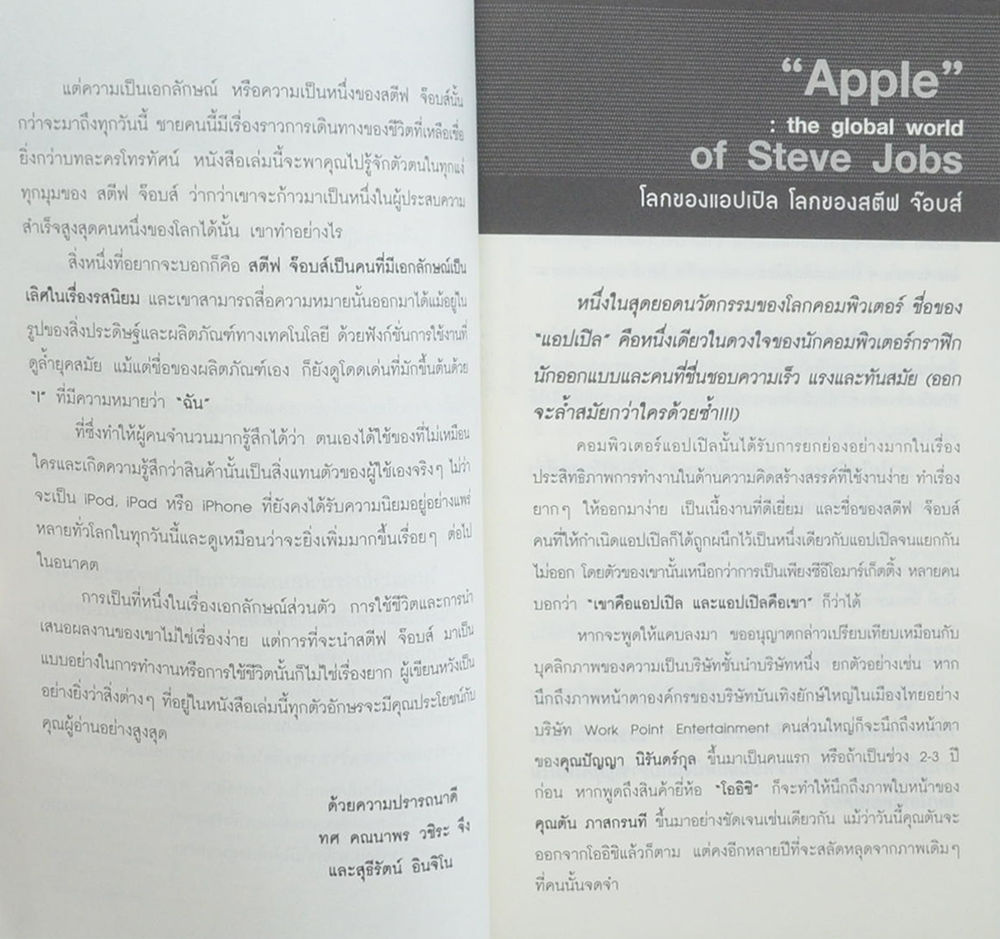 แต่ความเป็นเอกลักษณ์ หรือความเป็นหนึ่งของสตีฟ จ๊อบส์นั้น
กว่าจะมาถึงทุกวันนี้ ชายคนนี้มีเรื่องราวการเดินทางของชีวิตที่เหลือเชื่อ
ยิ่งกว่าบทละครโทรทัศน์ หนังสือเล่มนี้จะพาคุณไปรู้จักตัวตนในทุกแง่
ทุกมุมของ สตีฟ จ๊อบส์ ว่ากว่าเขาจะก้าวมาเป็นหนึ่งในผู้ประสบความ
สำเร็จสูงสุดคนหนึ่งของโลกได้นั้น เขาทำอย่างไร
สิ่งหนึ่งที่อยากจะบอกก็คือ สตีฟ จ๊อบส์เป็นคนที่มีเอกลักษณ์เป็น
เลิศในเรื่องรสนิยม และเขาสามารถสื่อความหมายนั้นออกมาได้แม้อยู่ใน
รูปของสิ่งประดิษฐ์และผลิตภัณฑ์ทางเทคโนโลยี ด้วยฟังก์ชั่นการใช้งานที่
ดูล้ำยุคสมัย แม้แต่ชื่อของผลิตภัณฑ์เอง ก็ยังดูโดดเด่นที่มักขึ้นต้นด้วย
"I" ที่มีความหมายว่า "ฉัน"
ที่ซึ่งทำให้ผู้คนจำนวนมากรู้สึกได้ว่า ตนเองได้ใช้ของที่ไม่เหมือน
ใครและเกิดความรู้สึกว่าสินค้านั้นเป็นสิ่งแทนตัวของผู้ใช้เองจริงๆ ไม่ว่า
จะเป็น iPod, iPad หรือ iPhone ที่ยังคงได้รับความนิยมอยู่อย่างแพร่
หลายทั่วโลกในทุกวันนี้และดูเหมือนว่าจะยิ่งเพิ่มมากขึ้นเรื่อยๆ ต่อไป
ในอนาคต
การเป็นที่หนึ่งในเรื่องเอกลักษณ์ส่วนตัว การใช้ชีวิตและการนำ
เสนอผลงานของเขาไม่ใช่เรื่องง่าย แต่การที่จะนำสตีฟ จ๊อบส์ มาเป็น
แบบอย่างในการทำงานหรือการใช้ชีวิตนั้นก็ไม่ใช่เรื่องยาก ผู้เขียนหวังเป็น
อย่างยิ่งว่าสิ่งต่างๆ ที่อยู่ในหนังสือเล่มนี้ทุกตัวอักษรจะมีคุณประโยชน์กับ
คุณผู้อ่านอย่างสูงสุด
ด้วยความปรารถนาดี
ทศ คณนาพร วชิระ จึง
และสุธีรัตน์ อินจิโน
"Apple"
: the global world
of Steve Jobs
โลกของแอปเปิล โลกของสตีฟ จ๊อบส์
หนึ่งในสุดยอดนวัตกรรมของโลกคอมพิวเตอร์ ชื่อของ
"แอปเปิล" คือหนึ่งเดียวในดวงใจของนักคอมพิวเตอร์กราฟิก
นักออกแบบและคนที่ชื่นชอบความเร็ว แรงและทันสมัย (ออก
จะล้ำสมัยกว่าใครด้วยซ้ำ!!!)
คอมพิวเตอร์แอปเปิลนั้นได้รับการยกย่องอย่างมากในเรื่อง
ประสิทธิภาพการทำงานในด้านความคิดสร้างสรรค์ที่ใช้งานง่าย ทำเรื่อง
ยากๆ ให้ออกมาง่าย เป็นเนื้องานที่ดีเยี่ยม และชื่อของสตีฟ จ๊อบส์
คนที่ให้กำเนิดแอปเปิลก็ได้ถูกผนึกไว้เป็นหนึ่งเดียวกับแอปเปิลจนแยกกัน
ไม่ออก โดยตัวของเขานั้นเหนือกว่าการเป็นเพียงซีอีโอมาร์เก็ตติ้ง หลายคน
บอกว่า "เขาคือแอปเปิล และแอปเปิลคือเขา" ก็ว่าได้
หากจะพูดให้แคบลงมา ขออนุญาตกล่าวเปรียบเทียบเหมือนกับ
บุคลิกภาพของความเป็นบริษัทชั้นนำบริษัทหนึ่ง ยกตัวอย่างเช่น หาก
นึกถึงภาพหน้าตาองค์กรของบริษัทบันเทิงยักษ์ใหญ่ในเมืองไทยอย่าง
บริษัท Work Point Entertainment คนส่วนใหญ่ก็จะนึกถึงหน้าตา
ของคุณปัญญา นิรันดร์กุล ขึ้นมาเป็นคนแรก หรือถ้าเป็นช่วง 2-3 ปี
ก่อน หากพูดถึงสินค้ายี่ห้อ "โออิชิ" ก็จะทำให้นึกถึงภาพใบหน้าของ
คุณตัน ภาสกรนที ขึ้นมาอย่างชัดเจนเช่นเดียวกัน แม้ว่าวันนี้คุณตันจะ
ออกจากโออิชิแล้วก็ตาม แต่คงอีกหลายปีที่จะสลัดหลุดจากภาพเดิมๆ
ที่คนนั้นจดจำ